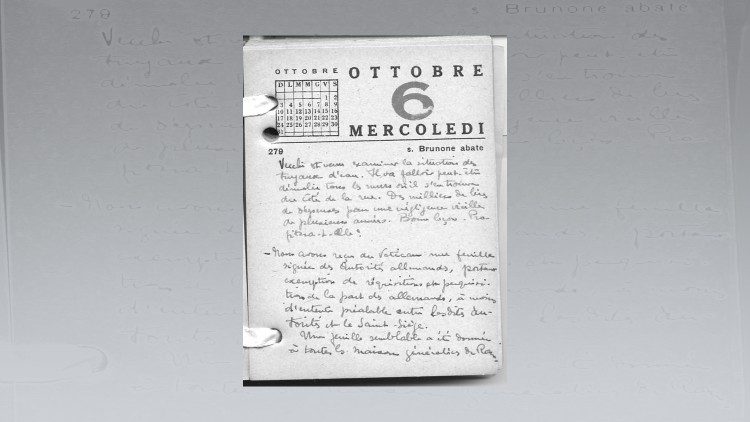 OTTOBRE
OTTOBRE
D L M M G V S
1 2
3 4 5 6 7 8 9
10 11 12 13 14 15 16
17 18 19 20 21 22 23
24 25 26 27 28 29 30
31
6
MERCOLEDI
279 s. Brunone abate
est venu examiner la situation des
tuyaux d'eau. Il va falloir peut-être
démolir tous les murs où il s'en trouve
du côté de la rue. Des milliers de lires
de dépenses pour une négligence vieille
de plusieurs années. Bonne leçon. Pro-
fitera-t-elle?
– Nous avons reçu du Vatican une feuille
signée des Autorités allemandes, portant
exemption de réquisitions et perquisi-
tions de la part des allemands, à moins
d'entente préalable entre lesdites Au-
torités et le Saint-Siège.
Une feuille semblable a été donnée
à toutes les maisons généralices de Rome